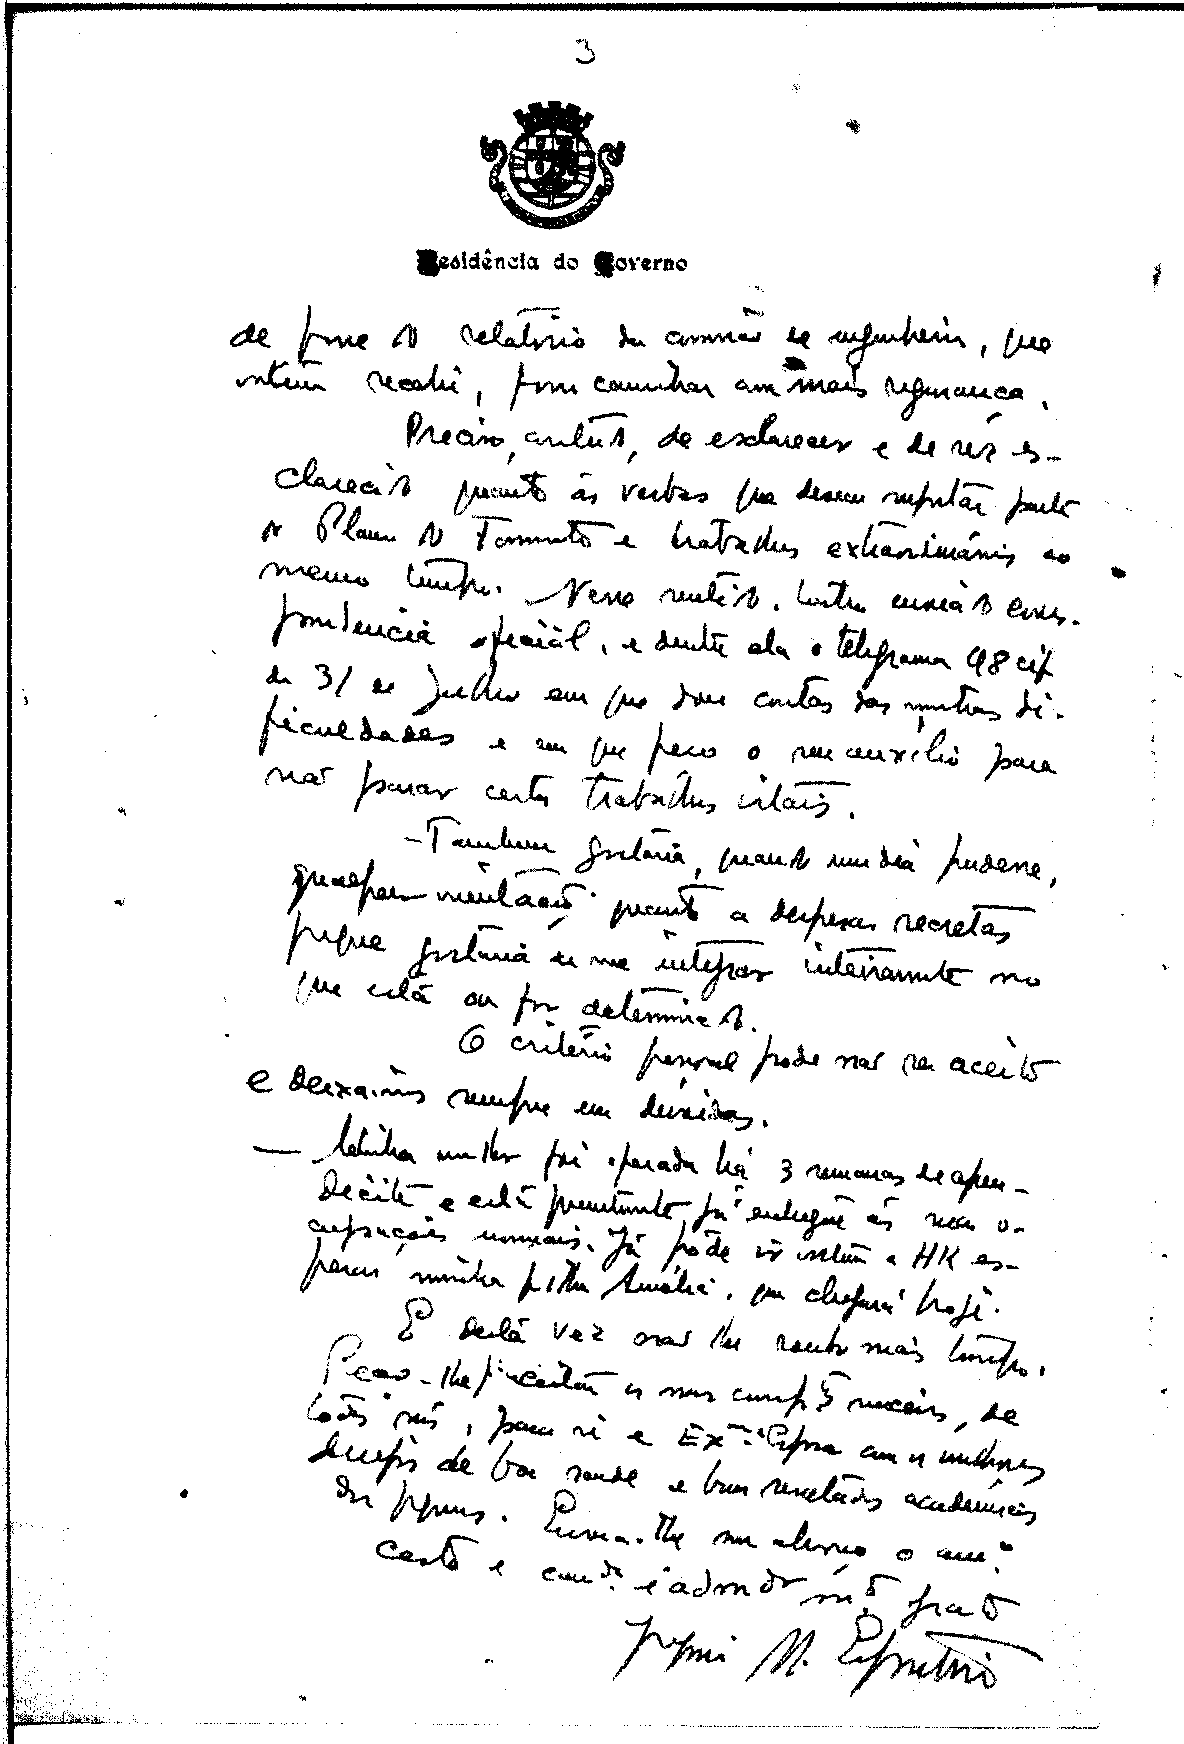 3
Residência do Governo
de posse do relatório da comissão de engenheiros, que
ontem recebi, posso caminhar com mais segurança.
Preciso, contudo, de esclarecer e de ser es-
clarecido quanto às verbas que devem suportar parte
do Plano do Fomento e trabalhos extraordinários ao
mesmo tempo. Nesse sentido, tenho enviado corres-
pondencia oficial, e dentre ela o telegrama 98 cif
de 31 de Julho em que dou contas das minhas di-
ficuldades e em que peço o seu auxílio para
não parar certos trabalhos vitais.
- Tambem gostaria, quando um dia pudesse,
orientação quanto a despesas secretas
porque gostaria de me integrar inteiramente no
que está ou for determinado.
O critério pessoal pode não ser aceite
e deixa-nos sempre em dúvidas.
— Minha mulher foi operada há 3 semanas de apen-
dicite e está presentemente já entregue às suas o-
cupações normais. Já pôde ir ontem a HK es-
perar minha filha Amália, que chegará hoje.
E desta vez não lhe roubo mais tempo.
Peço-lhe p.ª aceitar os nossos cumptos sinceros, de
todos nós, para si e Exma. Esposa com os melhores
desejos de boa saude e bons resultados académicos
dos pequenos. Envia-lhe um abraço o am.º
certo e cam.da e admdor mtº grato
M.